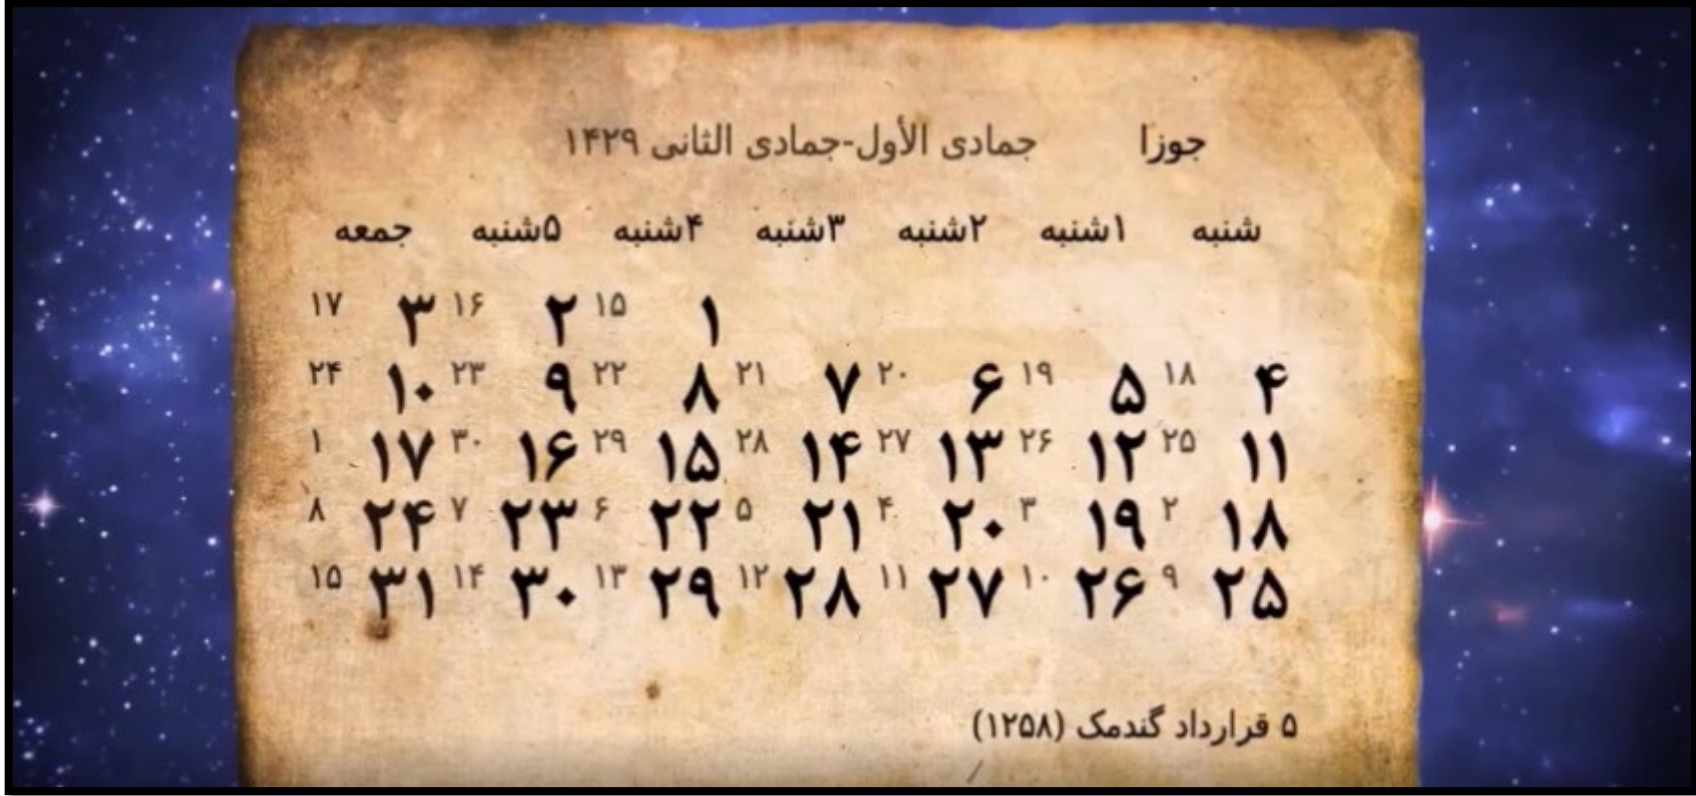 جوزا جمادی الأول-جمادی الثانی ۱۴۲۹
شنبه ۱شنبه ۲شنبه ۳شنبه ۴شنبه ۵شنبه جمعه
۱ ۱۵ ۲ ۱۶ ۳ ۱۷
۴ ۱۸ ۵ ۱۹ ۶ ۲۰ ۷ ۲۱ ۸ ۲۲ ۹ ۲۳ ۱۰ ۲۴
۱۱ ۲۵ ۱۲ ۲۶ ۱۳ ۲۷ ۱۴ ۲۸ ۱۵ ۲۹ ۱۶ ۳۰ ۱۷ ۱
۱۸ ۲ ۱۹ ۳ ۲۰ ۴ ۲۱ ۵ ۲۲ ۶ ۲۳ ۷ ۲۴ ۸
۲۵ ۹ ۲۶ ۱۰ ۲۷ ۱۱ ۲۸ ۱۲ ۲۹ ۱۳ ۳۰ ۱۴ ۳۱ ۱۵
۵ قرارداد گندمک (۱۲۵۸)